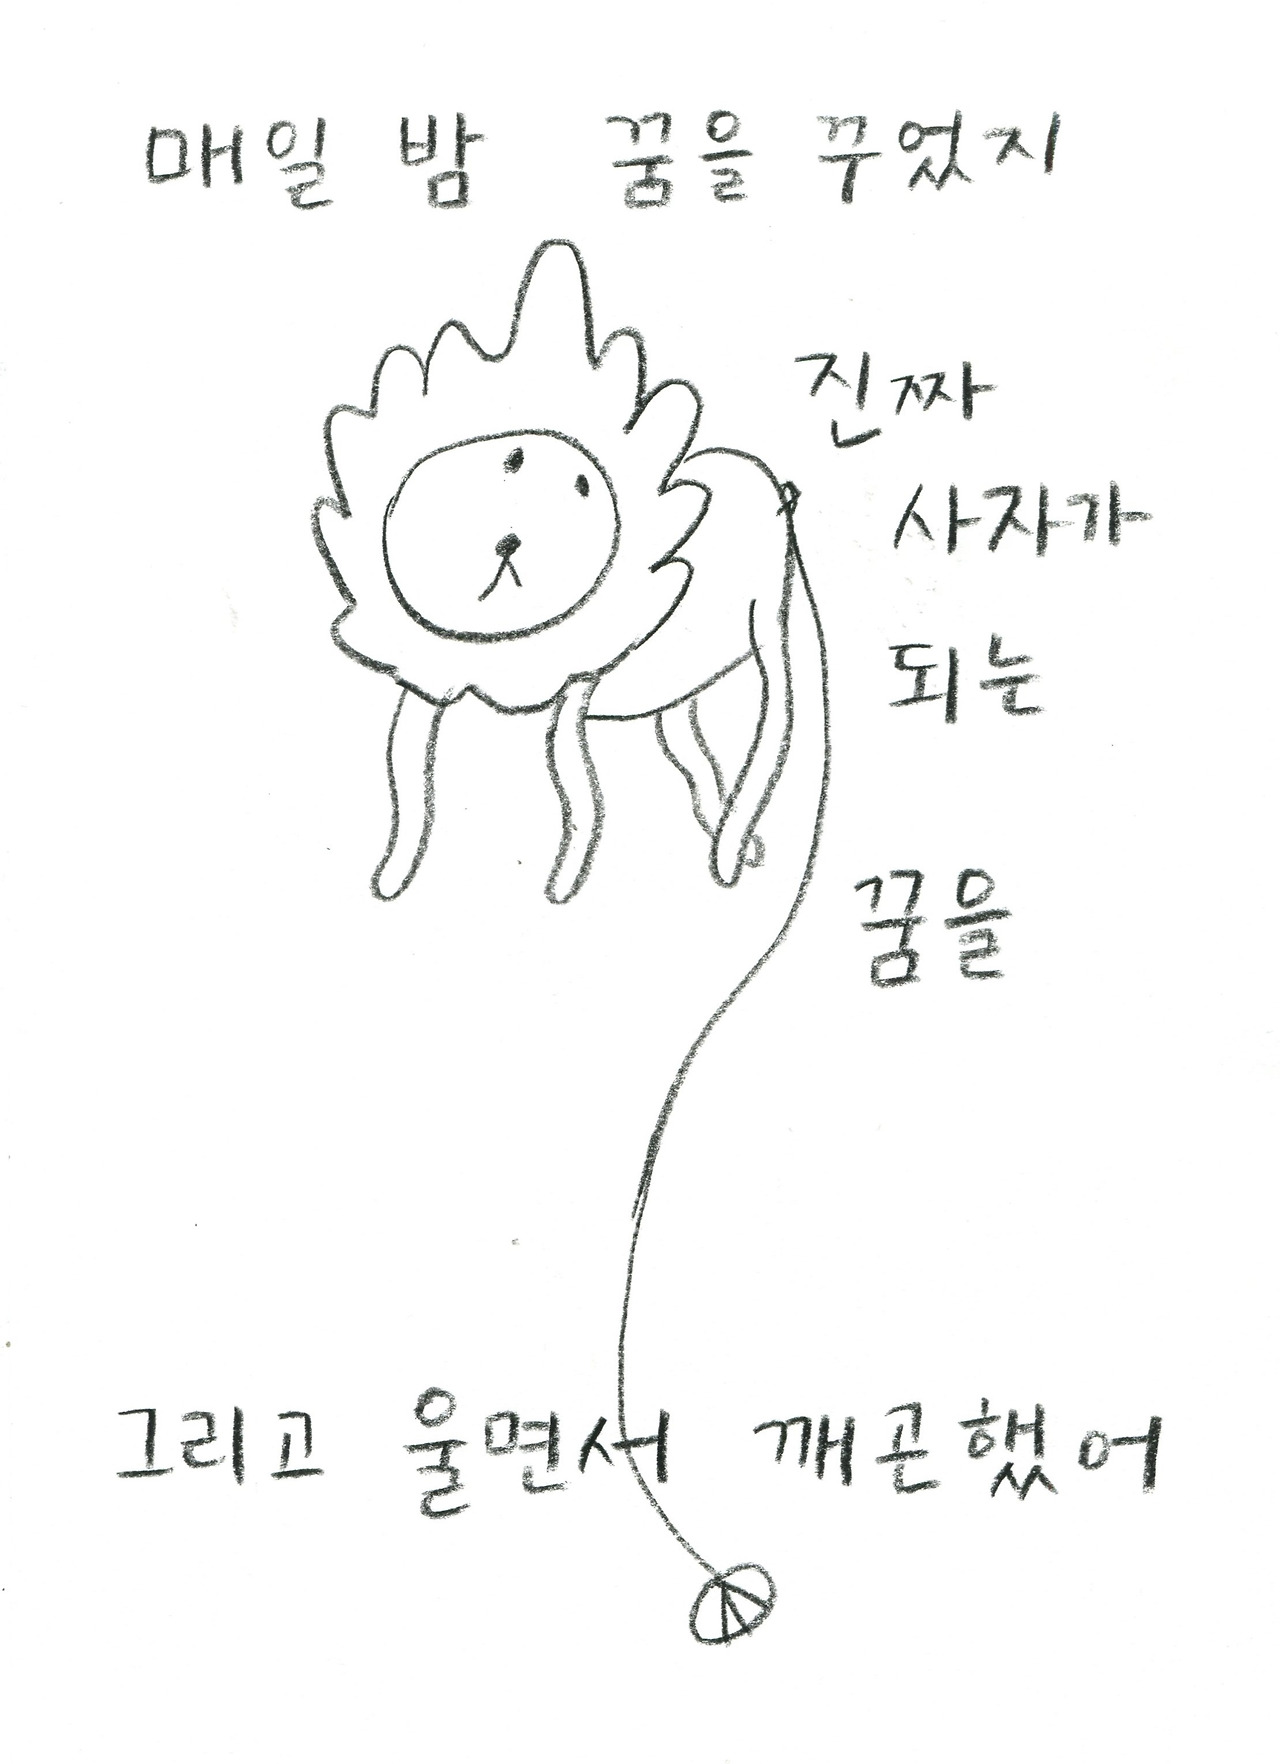 매일 밤 꿈을 꾸었지
진짜
사자가
되는
꿈을
그리고 울면서 깨곤했어